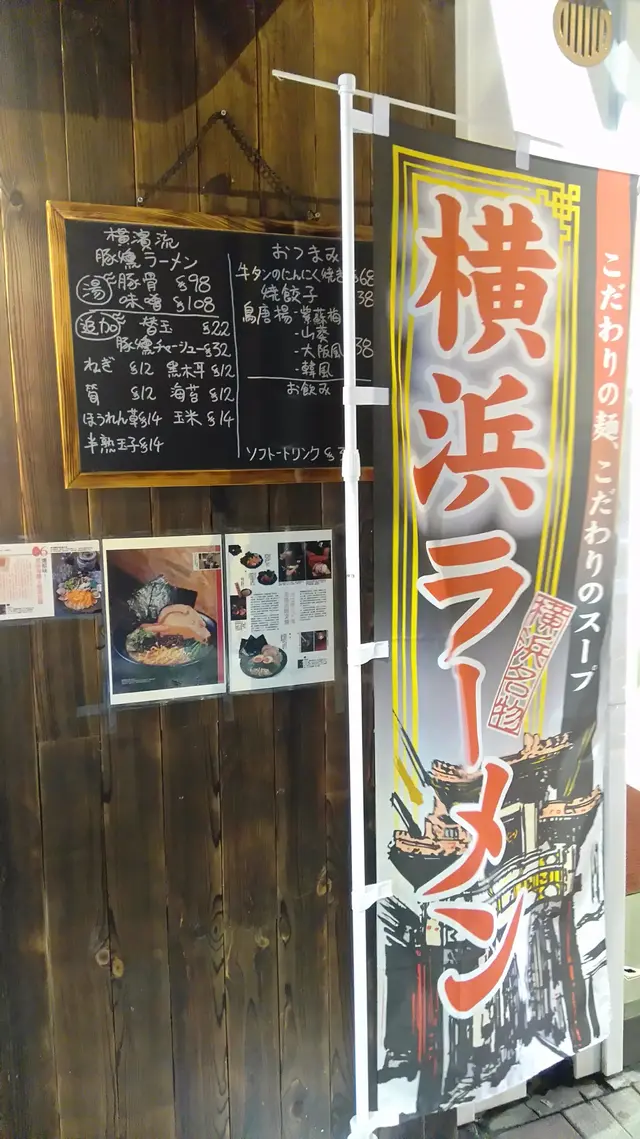 横濱流
豚燻ラーメン
湯 豚骨 $98
味噌 $108
追加 替玉 $22
豚燻チャーシュー $32
ねぎ $12 黒木耳 $12
筍 $12 海苔 $12
ほうれん草 $14 玉米 $14
半熟玉子 $14
おつまみ
牛タンのにんにく焼き $68
焼餃子 38
鳥唐揚 - 紫蘇梅
- 山葵
- 大阪風 38
- 韓風
お飲み
ソフトードリンク $
横浜ラーメン
横浜名物
こだわりの麺、こだわりのスープ